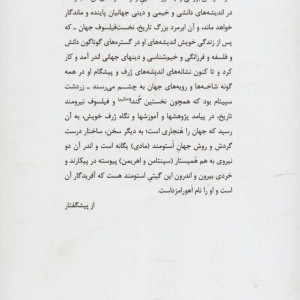 در اندیشه‌های دانشی و خیمی و دینی جهانیان پاینده و ماندگار
خواهد ماند، و آن ابرمرد بزرگ تاریخ، نخست‌فیلسوف جهان - که
پس از زندگی خویش اندیشه‌های او در گستره‌های گوناگون دانش
و فلسفه و فرزانگی و خیم‌شناسی و دینهای جهانی اندر آمد و کار
کرد و تا کنون نشانه‌های اندیشه‌های ژرف و پیشگام او در همه
گونه شاخه‌ها و رویه‌های جهان به چشم می‌رسند ـ زردشت
سپیتام بود که همچون نخستین گُندا و فیلسوف نیرومند
تاریخ، در پیامد پژوهشها و آموزشها و نگاه ژرف خویش، به آن
رسید که جهان را هَنجاری است؛ به دیگر سخن، ساختار درست
گردش و روش جهانِ اَستومند (مادی) یگانه است و اندر آن دو
نیروی به هم هَمیستار (سپنتامَن و اهریمن) پیوسته در پیکارند و
خردی بیرون و اندرون این گیتیِ استومند هست که آفریدگار آن
است و او را نام اَهورامَزداست.
از پیشگفتار